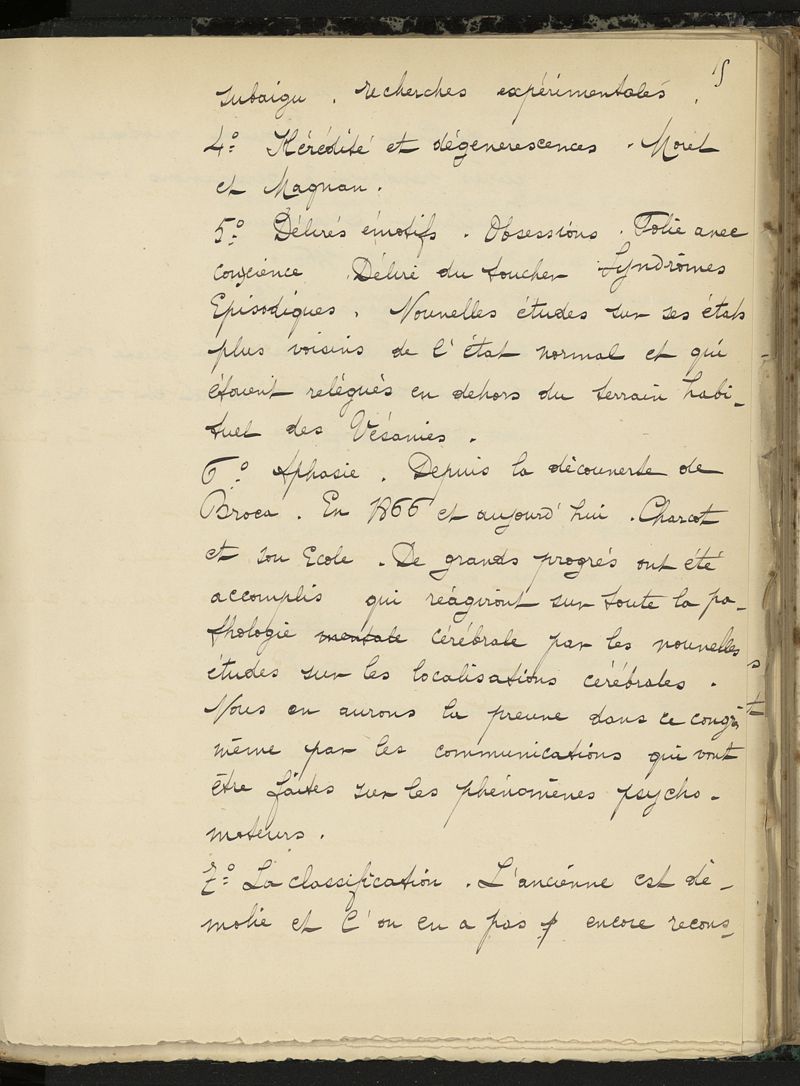 15
subaigu. recherches expérimentales.
4.° Hérédité et dégenerescences. Morel
et Magnan.
5.° Délires émotifs. Obsessions. Folie avec
conscience. Délire du toucher Syndrômes
Episodiques. Nouvelles études sur ses états
plus voisins de l'état normal et qui
étaient relégués en dehors du terrain habi-
tuel des Vésanies.
6.° Aphasie. Depuis la découverte de
Broca. En 1866 et aujourd'hui. Charcot
et son Ecole. De grands progrés ont été
accomplis qui réagiront sur toute la pa-
thologie mentale cérébrale par les nouvelles
études sur les localisations cérébrales.
Nous en aurons la preuve dans ce congrès
même par les communications qui vont
être faites sur les phénomènes psycho-
moteurs.
7.° La classification. L'ancienne est dé-
molie et l'on en a pas encore recons-